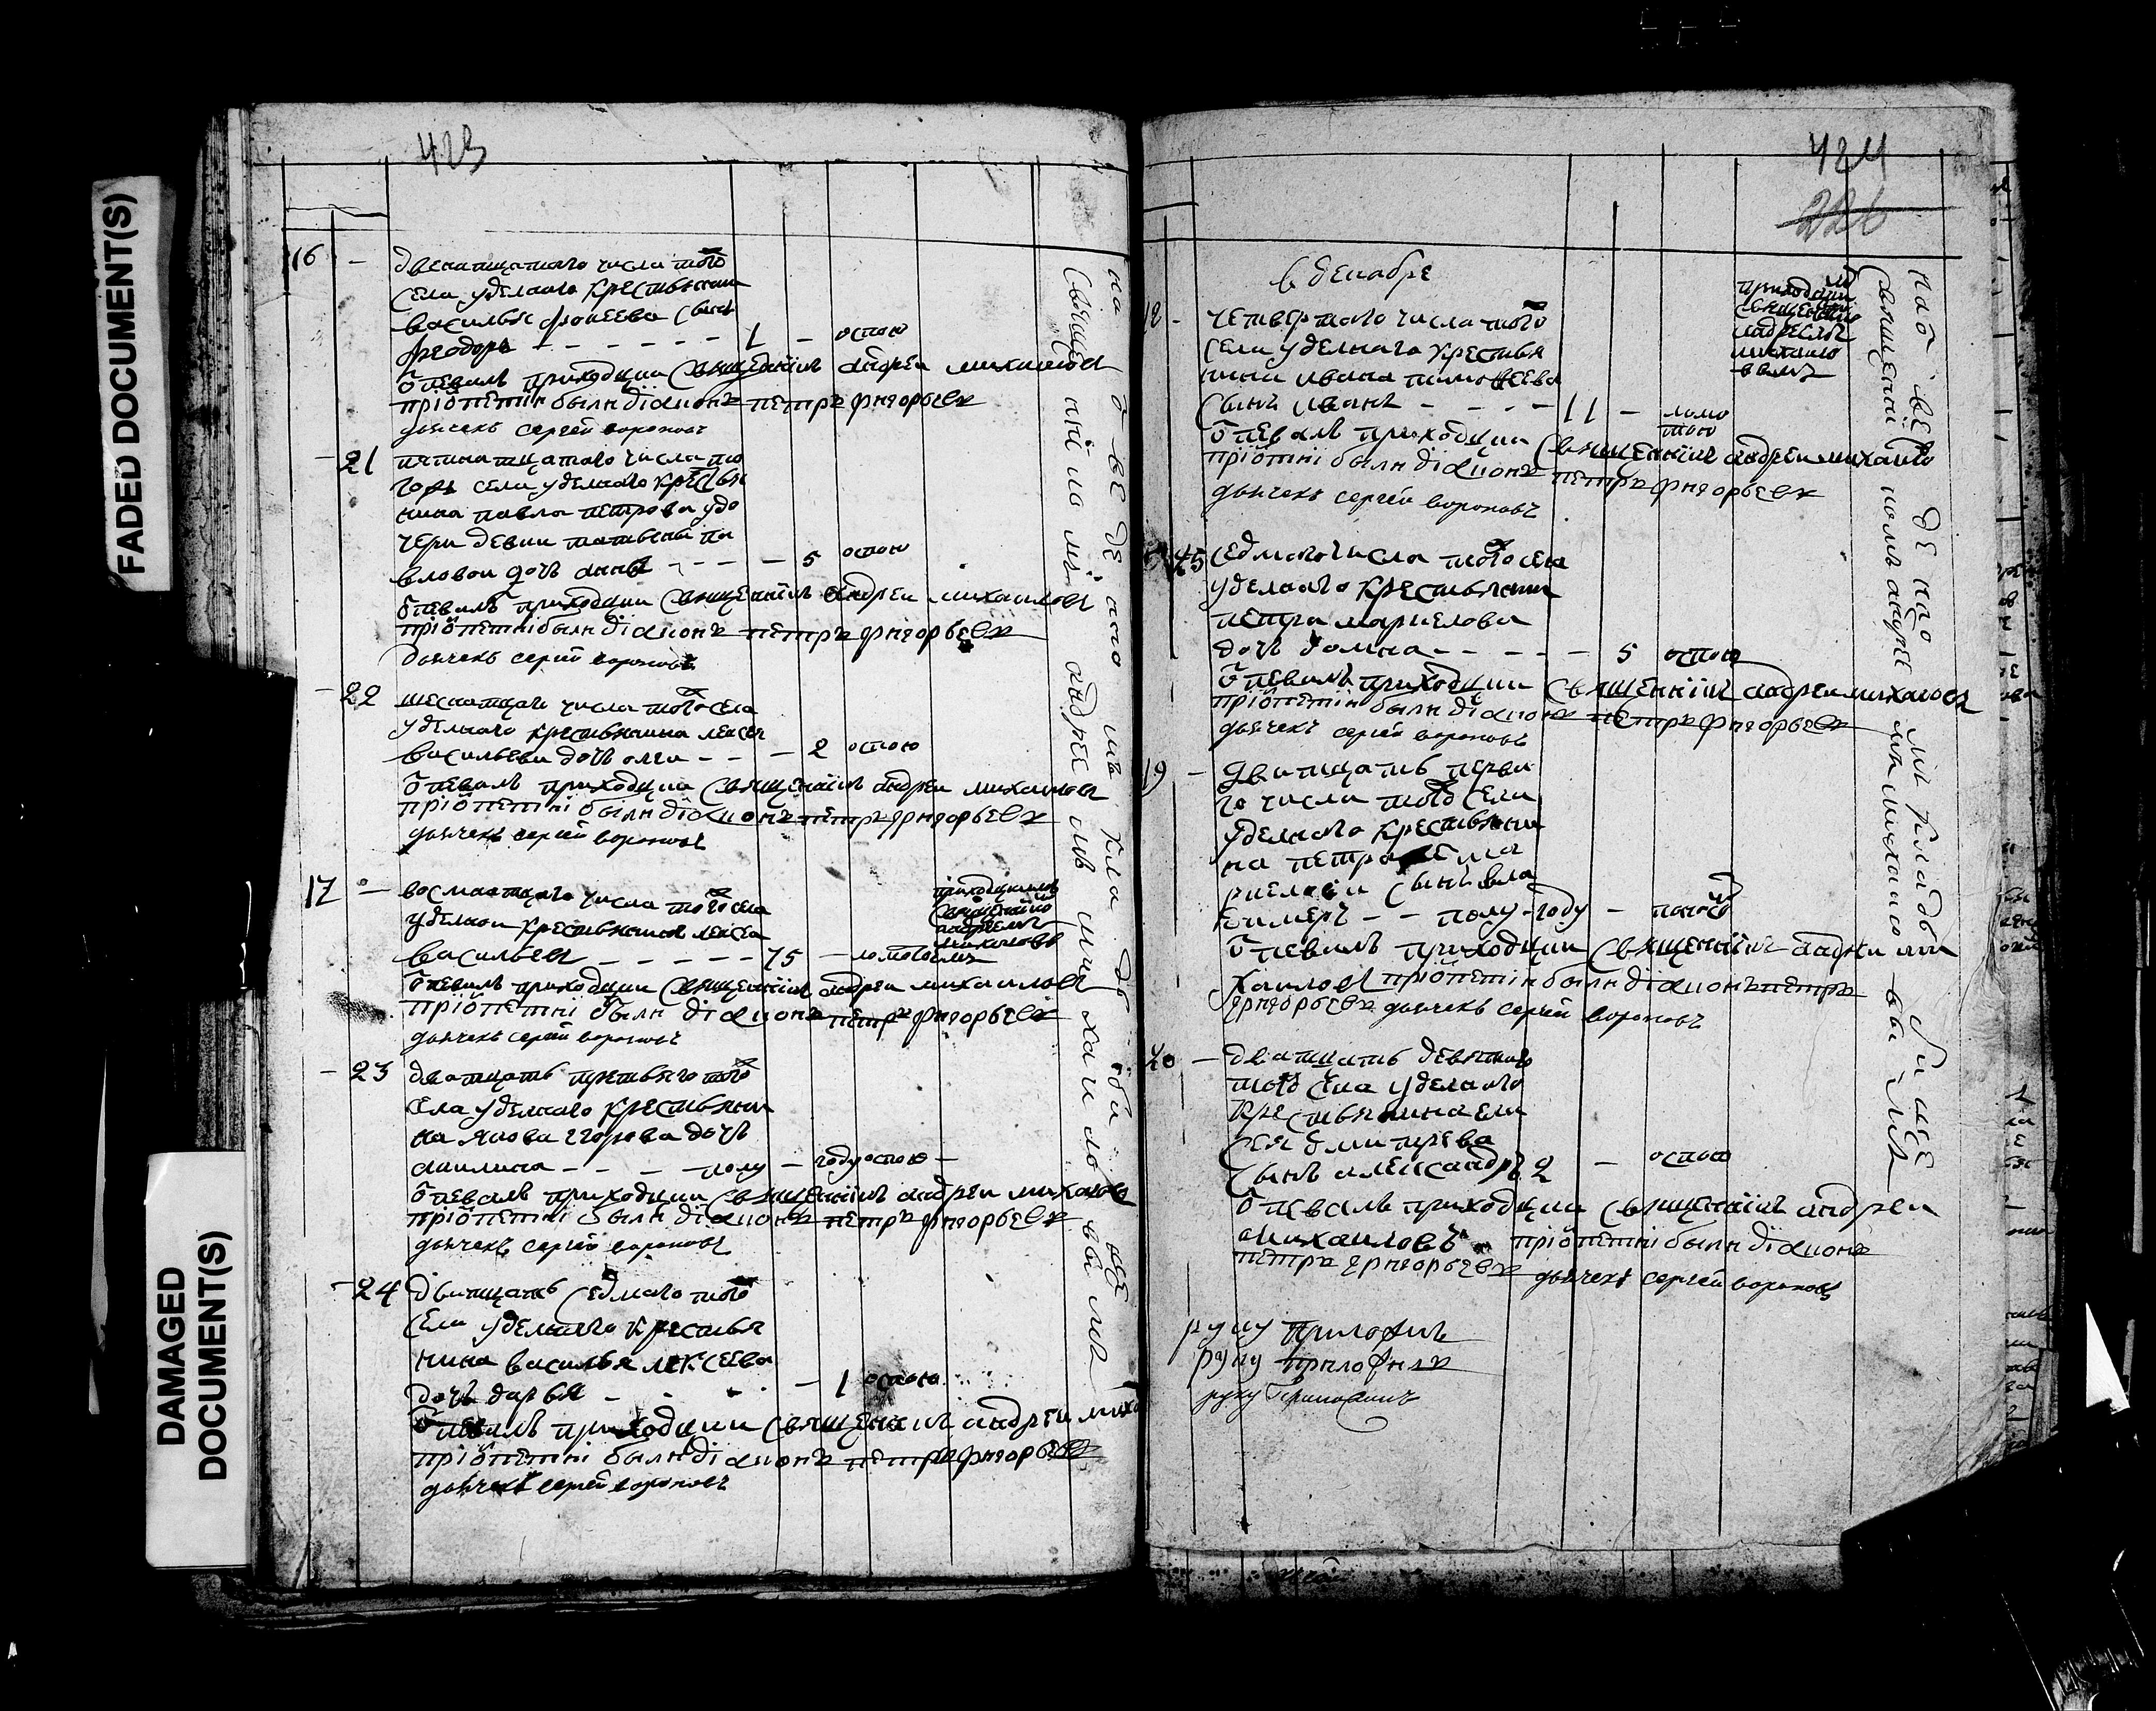 FADED DOCUMENT(S)
DAMAGED
DOCUMENT(S)
423
16 - двенатцатаго числа того
села уделнаго крестьянина
василья фокеева сынъ
феодоръ - - - - - - 1 - оспою
отпевалъ приходцки священникъ андреи михаиловъ
при отпетии были диаконъ петръ григорьевъ
дьячекъ сергей вороновъ
- 21 пятинатцатаго числа
села уделнаго крестья
нина павла петрова у до
чери девки татьяны па
вловои дочь анна - - - - 5 оспою
отпевалъ приходцки священникъ андреи михаиловъ
при отпетии были диаконъ петръ григорьевъ
дьячекъ сергий вороновъ
- 22 шеснатцаго числа того села
уделнаго крестьянина
васильева дочь - - - 2 оспою
отпевалъ приходцки священникъ андреи михаиловъ
при отпетии были диаконъ петръ григорьевъ
дьячекъ сергей вороновъ
17 - восмнатцаго числа того села
уделнои крестьянинъ алексеи
васильевъ - - - - - 75 - ломотою
приходцкимъ
священнико
андреемъ
михаиловы
мъ
отпевалъ приходцки священникъ андреи михаиловъ
при отпетии были диаконъ петръ григорьевъ
дьячекъ сергей вороновъ
- 23 дватцать третьяго того
села уделнаго крестьяни
на якова егорова дочь
акилина - - - полу - году оспою -
отпевалъ приходцки священникъ андреи михаиловъ
при отпетии были диаконъ петръ григорьевъ
дьячекъ сергей вороновъ
- 24 дватцать седмаго того
села уделнаго крестья
нина василья алексеева
дочь дарья - - - - 1 оспою
отпевалъ приходцки священникъ андреи миха
при отпетии были диаконъ петръ григорьевъ
дьячекъ сергей вороновъ
на отведенномъ кладбище
священникомъ андреемъ михаиловымъ
424
226
в декабре
18 - четвертаго числа того
села уделнаго крестья
нина ивана тимофеева
сынъ иванъ - - - - 11 - ломо
тою
приходцки
священнико
андреемъ
михаило
вымъ
отпевалъ приходцки священникъ андреи михаило
при отпетии были диаконъ петръ григорьевъ
дьячекъ сергей вороновъ
седмаго числа того села
уделнаго крестьянина
петра маркелова
дочь домна - - - - - 5 оспою
отпевалъ приходцки священникъ андреи михаиловъ
при отпетии были диаконъ петръ григорьевъ
дьячекъ сергей вороновъ
19 - дватцать перва
го числа того села
уделнаго крестьяни
на петра
сынъ вла
димеръ - - полу - году -
отпевалъ приходцки священникъ андреи ми
хаиловъ при отпетии были диаконъ петръ
григорьевъ дьячекъ сергей вороновъ
20 - дватцать девятаго
того села уделнаго
крестьянина ели
сея дмитрева
сынъ александръ 2 - оспою
отпевалъ приходцки священникъ андреи
михаиловъ при отпетии были диаконъ
петръ григорьевъ дьячекъ сергей вороновъ
руку приложилъ
руку приложилъ
руку приложилъ
на отведенномъ кладбище
священникомъ андреемъ михаиловымъ